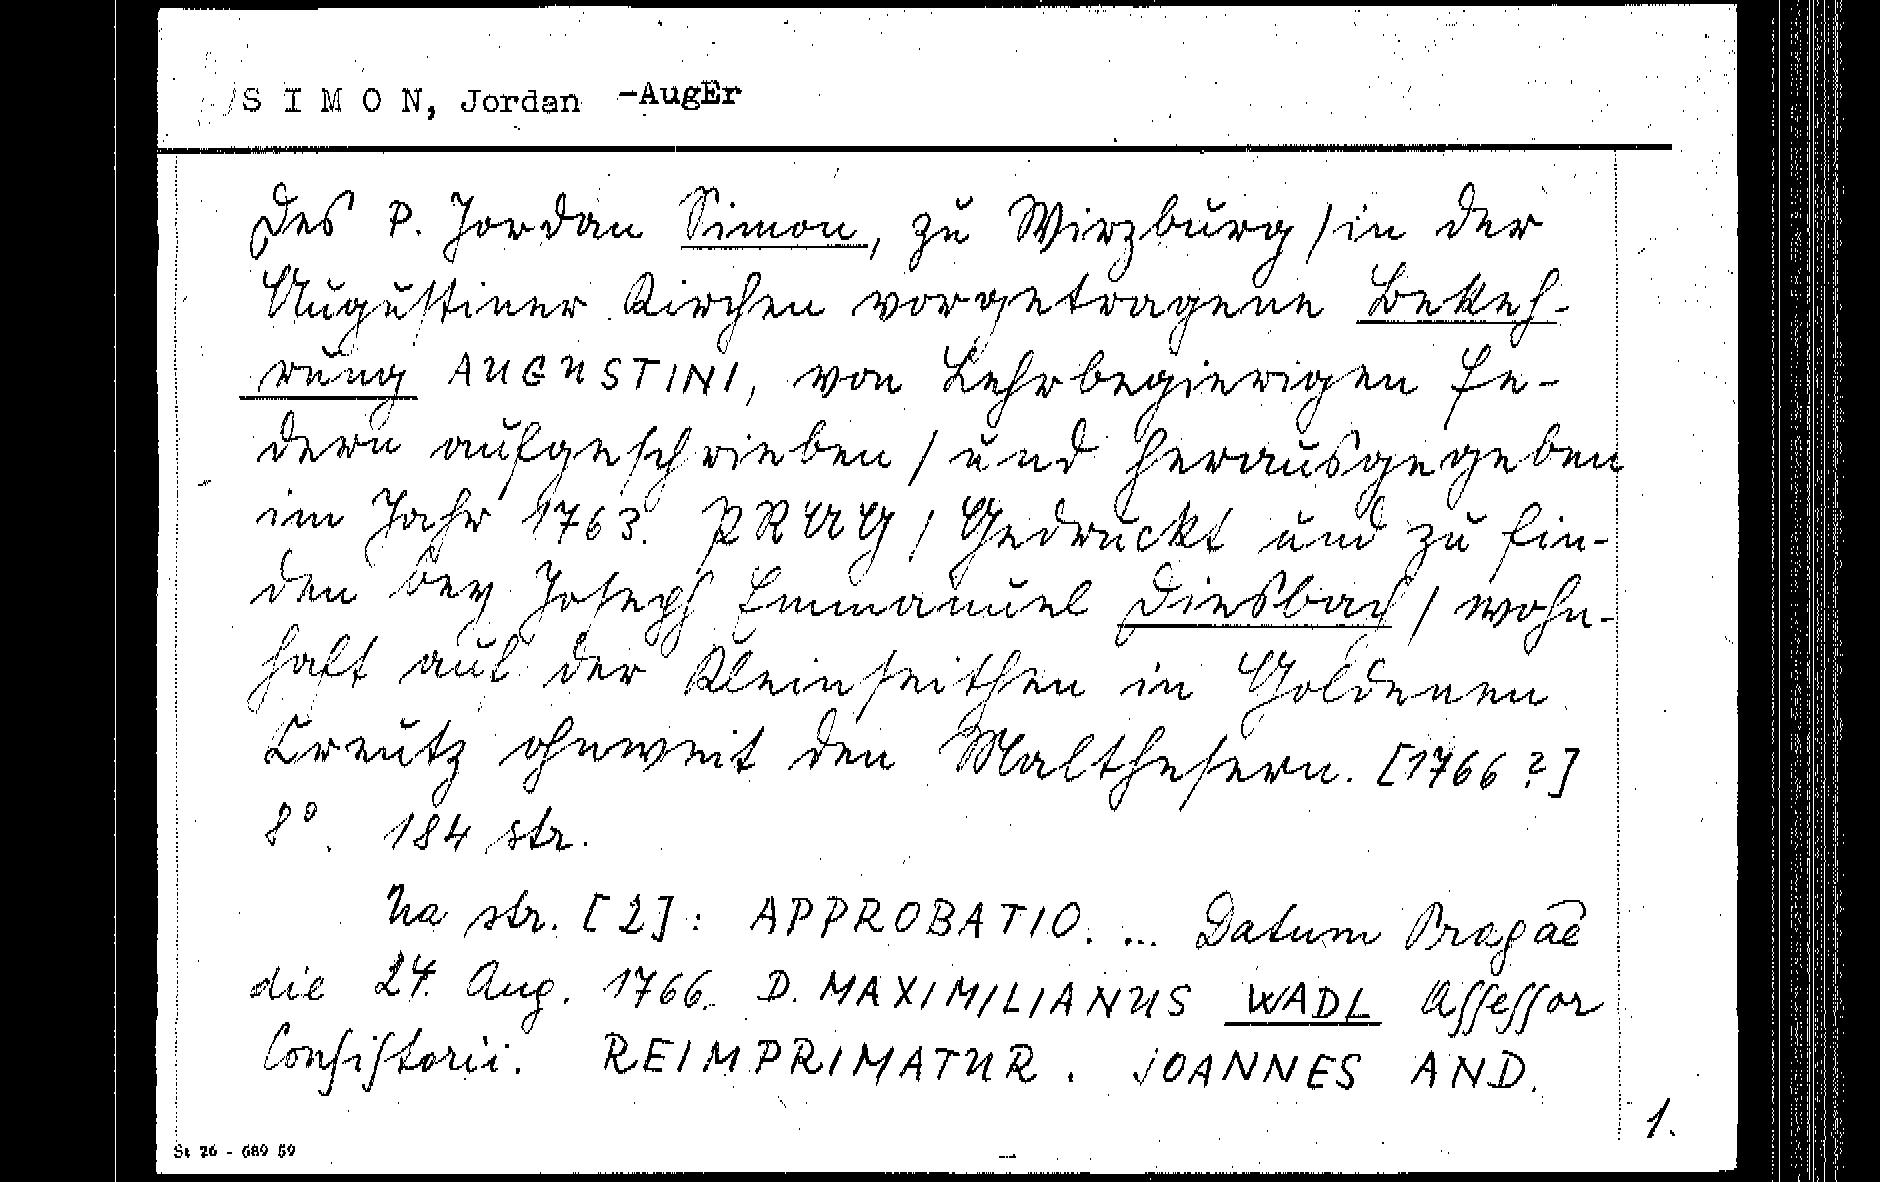 S I M O N, Jordan -AugEr
Des P. Jordan Simon, zu Wirzburg / in der
Augustiner Kirchen vorgetragene Bekeh-
rung AUGUSTINI, von Lehrbegierigen Fe-
dern aufgeschrieben / und herausgegeben
im Jahr 1763. PRAG / Gedruckt und zu fin-
den bey Joseph Emmanuel Diesbach / wohn-
haft auf der Kleinseithen in Goldenen
Creutz ohnweit den Malthesern. [1766 ?]
8°. 184 str.
Na str. [2]: APPROBATIO. ... Datum Pragae
die 24. Aug. 1766. D. MAXIMILIANUS WADL Assessor
Consistorii. REIMPRIMATUR. JOANNES AND.
1.
St 26 - 689 59